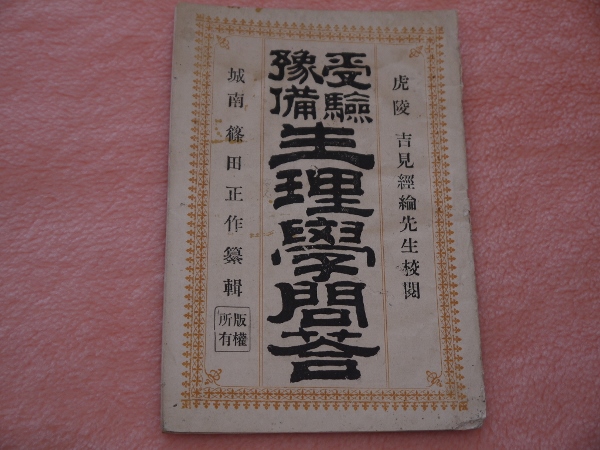 虎陵 吉見經綸先生校閲
受驗
豫備
生理學問荅
城南 篠田正作纂輯
版權
所有